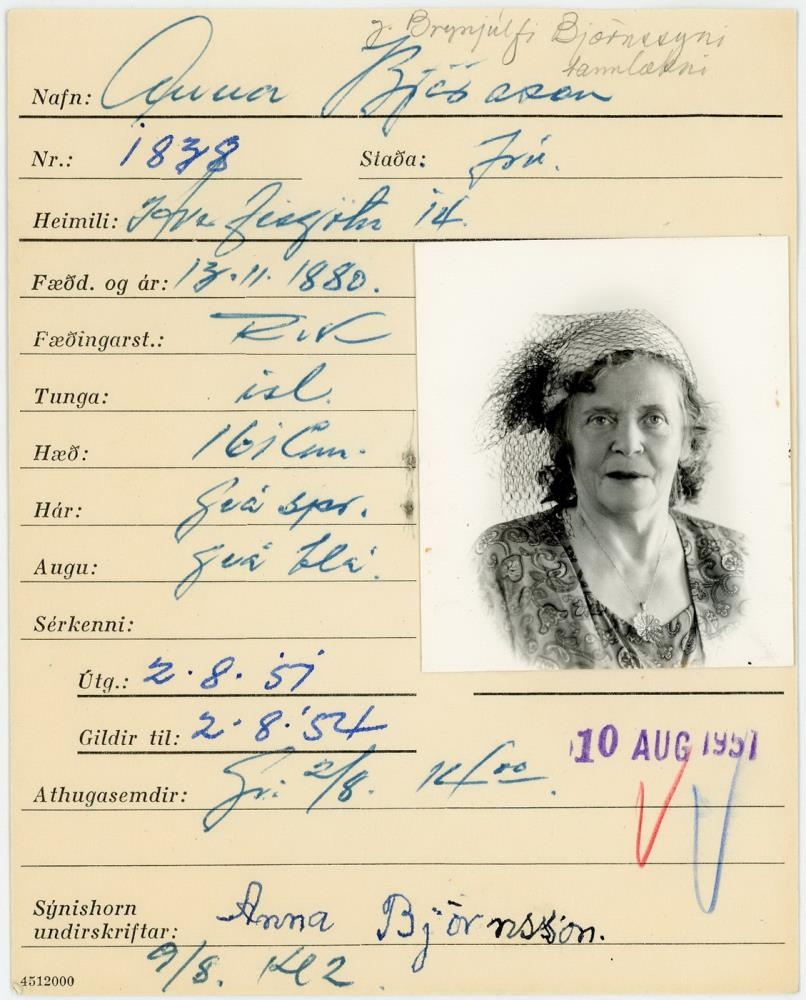 g. Brynjúlfi Björnssyni
tannlækni
Nafn: Anna Björnsson
Nr.: 1838 Staða: Frú.
Heimili: 14.
Fæðd. og ár: 13.11. 1880.
Fæðingarst.: Rvk
Tunga: ísl.
Hæð: 161 Cm.
Hár: Grá spr.
Augu: Grá blá.
Sérkenni:
Útg.: 2.8.'51
Gildir til: 2.8.'54
10 AUG 1951
Athugasemdir: 2/8.
Sýnishorn
undirskriftar: Anna Björnsson.
9/8. Kl 2
4512000